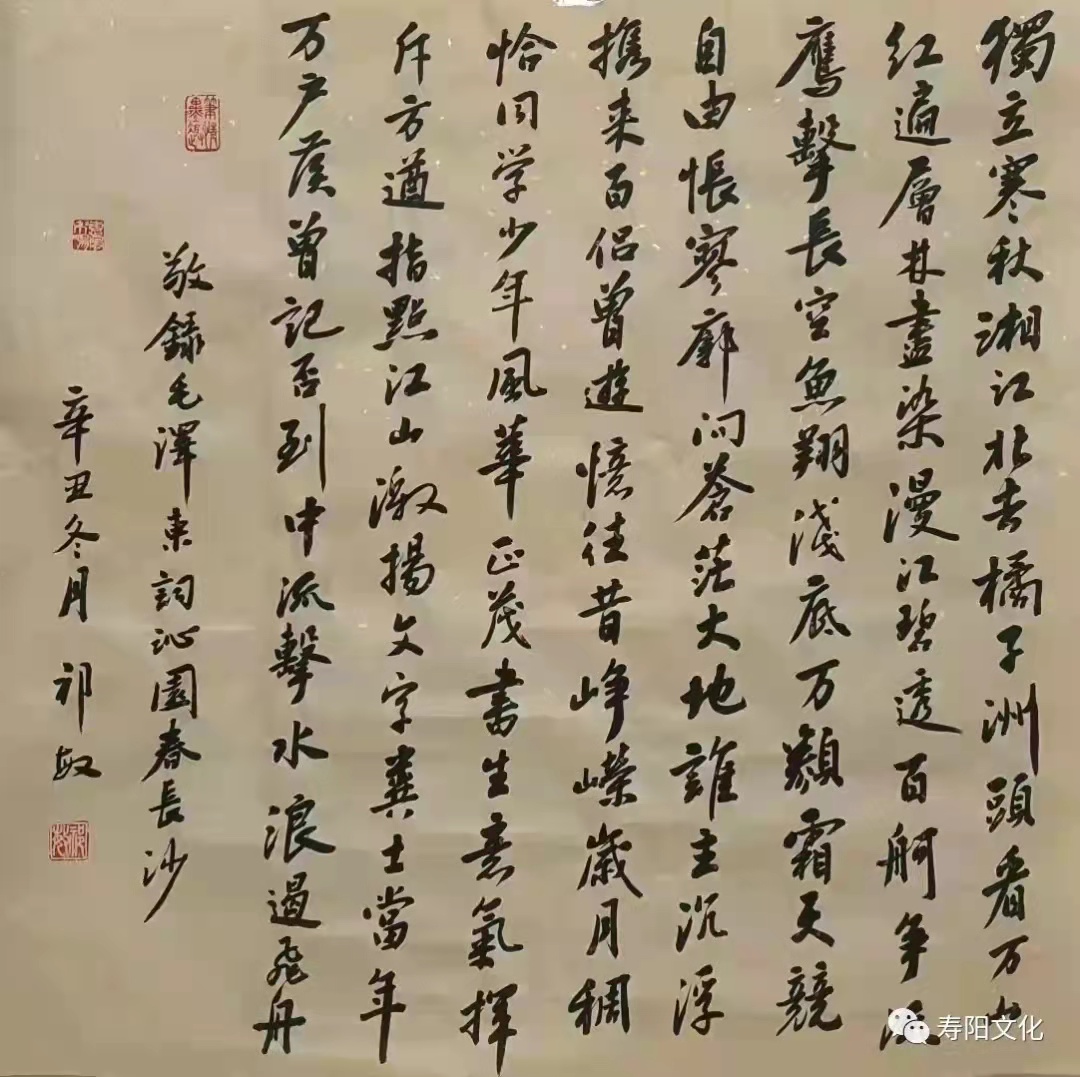 獨立寒秋湘江北去橘子洲頭看万山
红遍層林盡染漫江碧透百舸争流
鹰擊長空魚翔淺底万類霜天競
自由悵寥廓问蒼茫大地誰主沉浮
攜来百侣曾遊憶往昔峥嶸歲月稠
恰同学少年風華正茂書生意氣揮
斥方遒指點江山激揚文字糞土當年
万户侯曾記否到中流擊水浪遏飛舟
敬錄毛澤東詞沁園春長沙
辛丑冬月 祁敏
寿阳文化